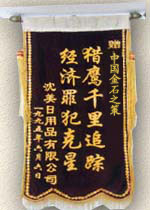 赠中国金石之策
猎鹰千里追踪
经济罪犯克星
沈美日用品有限公司
一九九五年六月六日